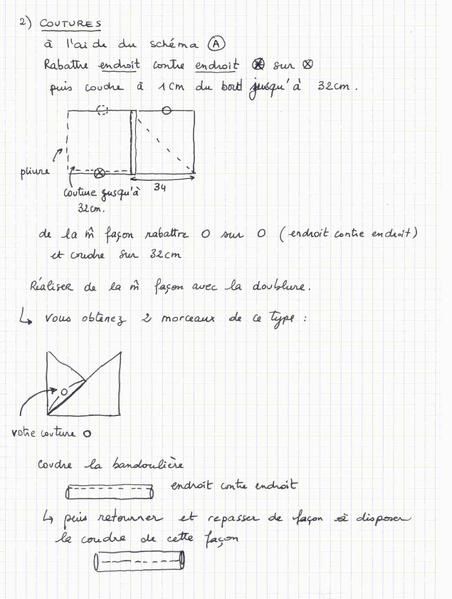 2) COUTURES
à l'aide du schéma Ⓐ
Rabattre endroit contre endroit ⊗ sur ⊗
puis coudre à 1cm du bord jusqu'à 32cm.
pliure
couture jusqu'à
32cm.
34
de la m̂ façon rabattre O sur O (endroit contre endroit)
et coudre sur 32cm
Réaliser de la m̂ façon avec la doublure.
↳ vous obtenez 2 morceaux de ce type :
O
votre couture O
coudre la bandoulière
endroit contre endroit
↳ puis retourner et repasser de façon à disposer
la coudre de cette façon